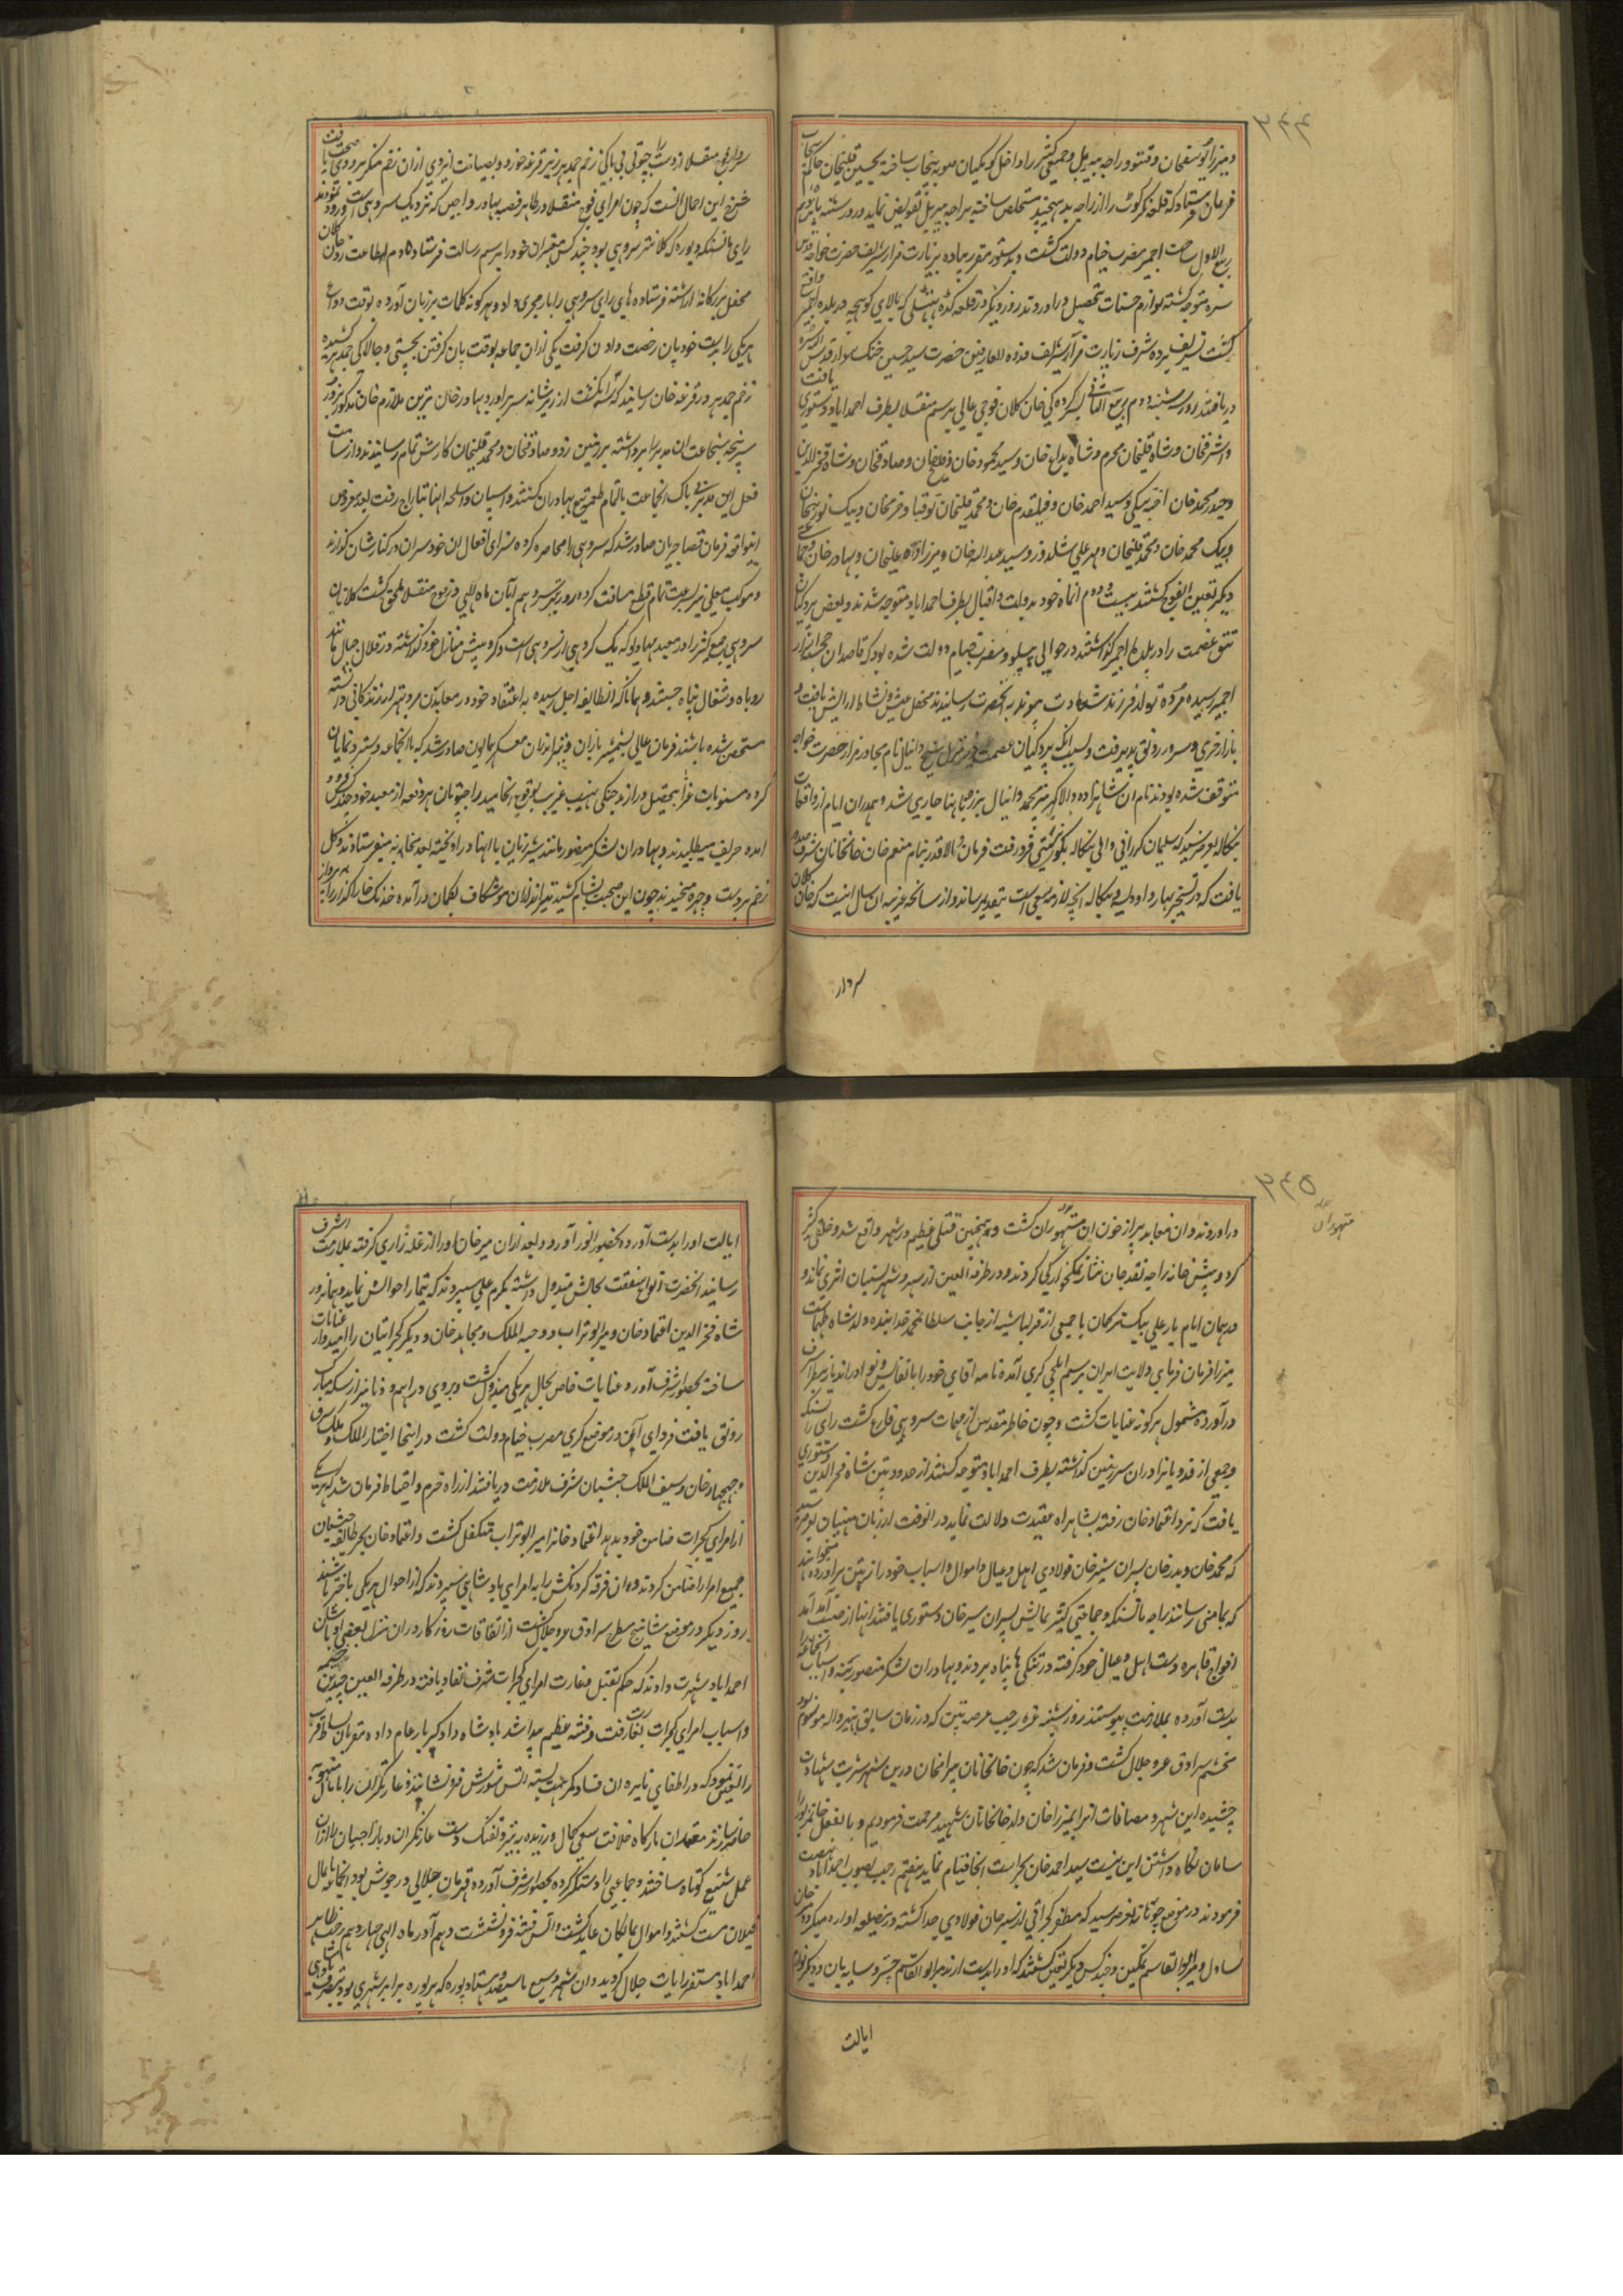 ۲۶۴
و میرزا یوسفخان و فتو و راجه بیربل و جمیع کثیر را داخل کومکیان صوبه پنجاب ساخته بحسین قلیخان حاکم پنجاب
فرمان فرستاد که قلعه نگرکوت را از راجه بدهیچند مستخلص ساخته براجه بیربل تفویض نماید و روز سشنبه پانزدهم
ربیع الاول ساحت اجمیر مضرب خیام دولت گشت و بدستور مقرر پیاده بزیارت مزار شریف حضرت خواجه قدس
سره متوجه گشته لوازم حسنات بتحصیل در آوردند روز دیگر در قلعه که بالای کوهچه در بلده اجمیر واقع
گشت تشریف برده شرف زیارت مزار شریف قدوه العارفین حضرت سید حسین خنک سوار قدس سره
دریافتند روز سشنبه دوم ربیع الثانی بسرکردگی خان کلان فوجی عالی برسم منقلا بطرف احمداباد دستوری یافت
و اشرفخان و شاه قلیخان محرم و شاه بداغ خان و سید محمود خان و قلیچخان و صادقخان و شاه فخرالدین
و حیدر محمدخان اخته بیگی و سید احمد خان و قتلقدم خان و محمد قلیخان توقبا و خرمخان و بیک نورینخان
و بیک محمد خان و محمد قلیخان و مهر علی سلدوز و سید عبدالله خان و میرزاده علیخان و بهادر خان و جمعی
دیگر تعین الفوج گشتند بیست و دوم انماه خود بدولت و اقبال بطرف احمداباد متوجه شدند و بعض پردکیان
تتق عصمت را در بلده اجمیر گذاشتند در حوالی مضرب خیام دولت شده بود که قاصدان از
اجمیر رسیده مژده تولد فرزند سعادت پیوند به آنحضرت رسانیدند محفل عیش و نشاط آرایش یافت و
بازار خرمی و سرور رونق پذیرفت و بسبب انکه پردکیان عصمت در منزل شیخ دانیال نام مجاور مزار حضرت خواجه
متوقف شده بودند نام ان شاهزاده والا گهر محمد دانیال بزرگ جاری شد و همدران ایام از واقعات
بنکاله بعرض رسید که سلیمان کررانی والی بنکاله فرو رفت فرمان والا قدر بنام منعم خان خانخانان شرف صدور
یافت که در تسخیر بهار و اودیسه و بنکاله انچه لازمه سعی است بتقدیم رساند و از سانحه غریبه ان سال اینست که خان کلان
سردار
سردار فوج منقلا از دست راجپوتی بی باکی زخم جمدهر زیر ترقوه خورد و بصیانت ایزدی ازان زخم منکر بزودی صحت یافت
شرح این احوال انست که چون امرای فوج منقلا در ظاهر قصبه بهادراجن که نزدیک سروهی است ورود نمودند
رای مانسنکه دیوره که کلانتر سروهی بود چند کس معتبران خود را برسم رسالت فرستاده دم اطاعت زد خان کلان
محفل بزرکانه اراسته فرستاده های رای سروهی را بار مجری داد و هر کونه کلمات بر زبان آورده بوقت دواع
هریکی را بدست خود پان رخصت دادن گرفت یکی ازان جماعه بوقت پان گرفتن بچستی و چالاکی جمدهر کشیده
زخم جمدهر در ترقوه خان رسانید که سه انگشت از زیر شانه سر بر آورد بهادر خان ترین ملازم خان مذکور بزور
سرپنجه شجاعت ان مدبر را برداشته بر زمین زد و صادقخان و محمد قلیخان کارش تمام رسانیدند و از شامت
فعل این مدبر بی باک انجماعت بالتمام طعمه تیغ بهادران گشتند و اسپان و اسلحه انها بتاراج رفت بعد معروض
اینواقعه فرمان قضا جریان صادر شد که سروهی را محاصره کرده سزای افعال ان خودسران در کنارشان گذارند
و موکب معلی نیز بسرعت تمام قطع مسافت کرده روز تیر سیزدهم آبان ماه الهی در فوج منقلا ملحق گشت کلانتران
سروهی جمع کثیر را در معبد مهادیو که یک گروهی از سروهی است و گروهیش منازل خود گذاشته در قلل جبال مانند
روباه و شغال پناه جستند و همانا که انطایفه اجل رسیده به اعتقاد خود در معابد مردن بهتر از زندگانی دانسته
متحصن شده باشند فرمان عالی بشمشیر بازان و تیراندازان معسکر همایون صادر شد که باانجماعه دستبرد نمایان
کرده مثوبات غزا بتحصیل درآزند جنگی مهیب غریب بوقوع انجامید راجپوتان هر دفعه از معبد خود چند کس فرود
امده حریف میطلبیدند و بهادران لشکر منصور مانند شیر ژیان باانها دراویخته بعد بخانه نیستی میفرستادند و گل
زخم بر دست و چهره میچیدند چون این صحبت بشام کشید تیراندازان موشکاف بکمان درآمده خدنک خارا گذار را پرواز
۲۶۵
متهوران
در اوردند و ان معابد پر از خون ان متهوران گشت و همچنین قتلی عظیم در شهر واقع شد و خلقی کثیر
گرد و پیش خانه راجه نقد جان نثار نمکخوارگی کردند و در طرفه العین از سروهی و شهر بستیان اثری نماند و
در همان ایام یار علی بیک ترکمان با جمعی از قزلباشیه از جانب سلطان محمد خدابنده ولد شاه طهماسب
میرزا فرمان فرمای ولایت ایران برسم ایلچی گری آمده نامه اقای خود را با نفایس و نوادر اندیار بنظر اشرف
در آورده مشمول هرگونه عنایات گشت و چون خاطر مقدس از مهمات سروهی فارغ گشت رای راسنگه
و جمعی از فدویانرا دران سرزمین گذاشته بطرف احمداباد متوجه گشتند از حدود پتن شاه فخرالدین دستوری
یافت که نزد اعتماد خان رفته بشاهراه عقیدت دلالت نماید در انوقت از زبان منهیان بعرض رسید
که محمد خان و بدر خان پسران شیر خان فولادی اهل و عیال و اموال و اسباب خود را از پتن برآورده میخواهند
که بمامنی رسانند راجه مانسنکه و جماعتی کثیر بمالش پسران شیر خان دستوری یافتند انها از صیت آمد آمد
افواج قاهره دست اهل و عیال خود گرفته در تنگی ها پناه بردند و بهادران لشکر منصور بنه و اسباب انجماعه را
بدست آورده بملازمت پیوستند روز شنبه غره رجب عرصه پتن که در زمان سابق بنهرواله موسوم بود
مخیم سرادق عز و جلال گشت و فرمان شد که چون خانخانان بیرامخان درین شهر شربت شهادت
چشیده این شهر و مضافات انرا بمیرزا خان ولد خانخانان شهید مرحمت فرمودیم و بالفعل
سامان نگاه داشتن این نیست سید احمد خان بحراست انجا قیام نماید هفتم رجب بصوب احمداباد نهضت
فرمودند در موضع چوتانه بعرض رسید که مظفر گجراتی از شیر خان فولادی جدا گشته درینضلعه اواره میگردد میر خان
یساول و میر ابوالقاسم نمکین و چند کس دیگر تعین گشتند که او را بدست ارند میر ابوالقاسم چتر و سایه بان و دیگر لوازم
ایالت
ایالت او را بدست آورده بحضور انور آورد و بعد ازان میر خان او را از غله زاری گرفته بملازمت اشرف
رسانید انحضرت انواع شفقت بحالش مبذول داشته بکرم علی سپردند که تیمار احوالش نماید و همانروز
شاه فخر الدین اعتماد خان و میر ابوتراب و وجیه الملک و مجاهد خان و دیگر گجراتیان را امیدوار عنایات
ساخته بحضور اشرف آورد و عنایات خاص بحال هریکی مبذول گشت و بروی دراهم و دنانیر از سکه مبارک
رونق یافت فردای آن در موضع کری مضرب خیام دولت گشت در اینجا اختیار الملک و ملک شرق
و جهجهار خان و سیف الملک حبشیان شرف ملازمت دریافتند از راه حزم و احتیاط فرمان شد که هر یکی
از امرای گجرات ضامن خود بدهد اعتماد خانرا میر ابوتراب متکفل گشت و اعتماد خان بجز طایفه حبشیان
جمیع امرا را ضامن کردند و ان فرقه گردنکش را به امرای بادشاهی سپردند که از احوال هریکی باخبر باشند
روز دیگر در موضع سانیج سطح سرادق عز و جلال گشت از اتفاقات روزگار دران منزل بعضی اوباش
احمداباد شهرت دادند که حکم بقتل و غارت امرای گجرات شرف نفاد یافته در طرفه العین چندین خیمه
و اسباب امرای گجرات بغارت رفت و فتنه عظیم پیدا شد بادشاه دادگر بار عام داده مقربان بساط قرب
را تعین نمود که در اطفای نایره ان فساد کمر همت بسته اتش شورش فرونشانند و غارتگران را
حاضر سازند معتمدان بارگاه خلافت سعی کمال ورزیده به تیر و تفنک دست غارتگران و تاراجیان را ازان
عمل شنیع کوتاه ساختند و جماعتی را دستگیر کرده بحضور اشرف آورده قهرمان جلالی در جوش بود انجماعه پامال
فیلان مست گشتند و اموال بمالکان عاید گشت و اتش فتنه فرو نشست دهم آذر ماه الهی چهاردهم رجب ظاهر
احمداباد مستقر رایات جلال گردید و ان شهر وسیع با سیصد و هشتاد پوره که هر پوره برابر شهری بود بتصرف